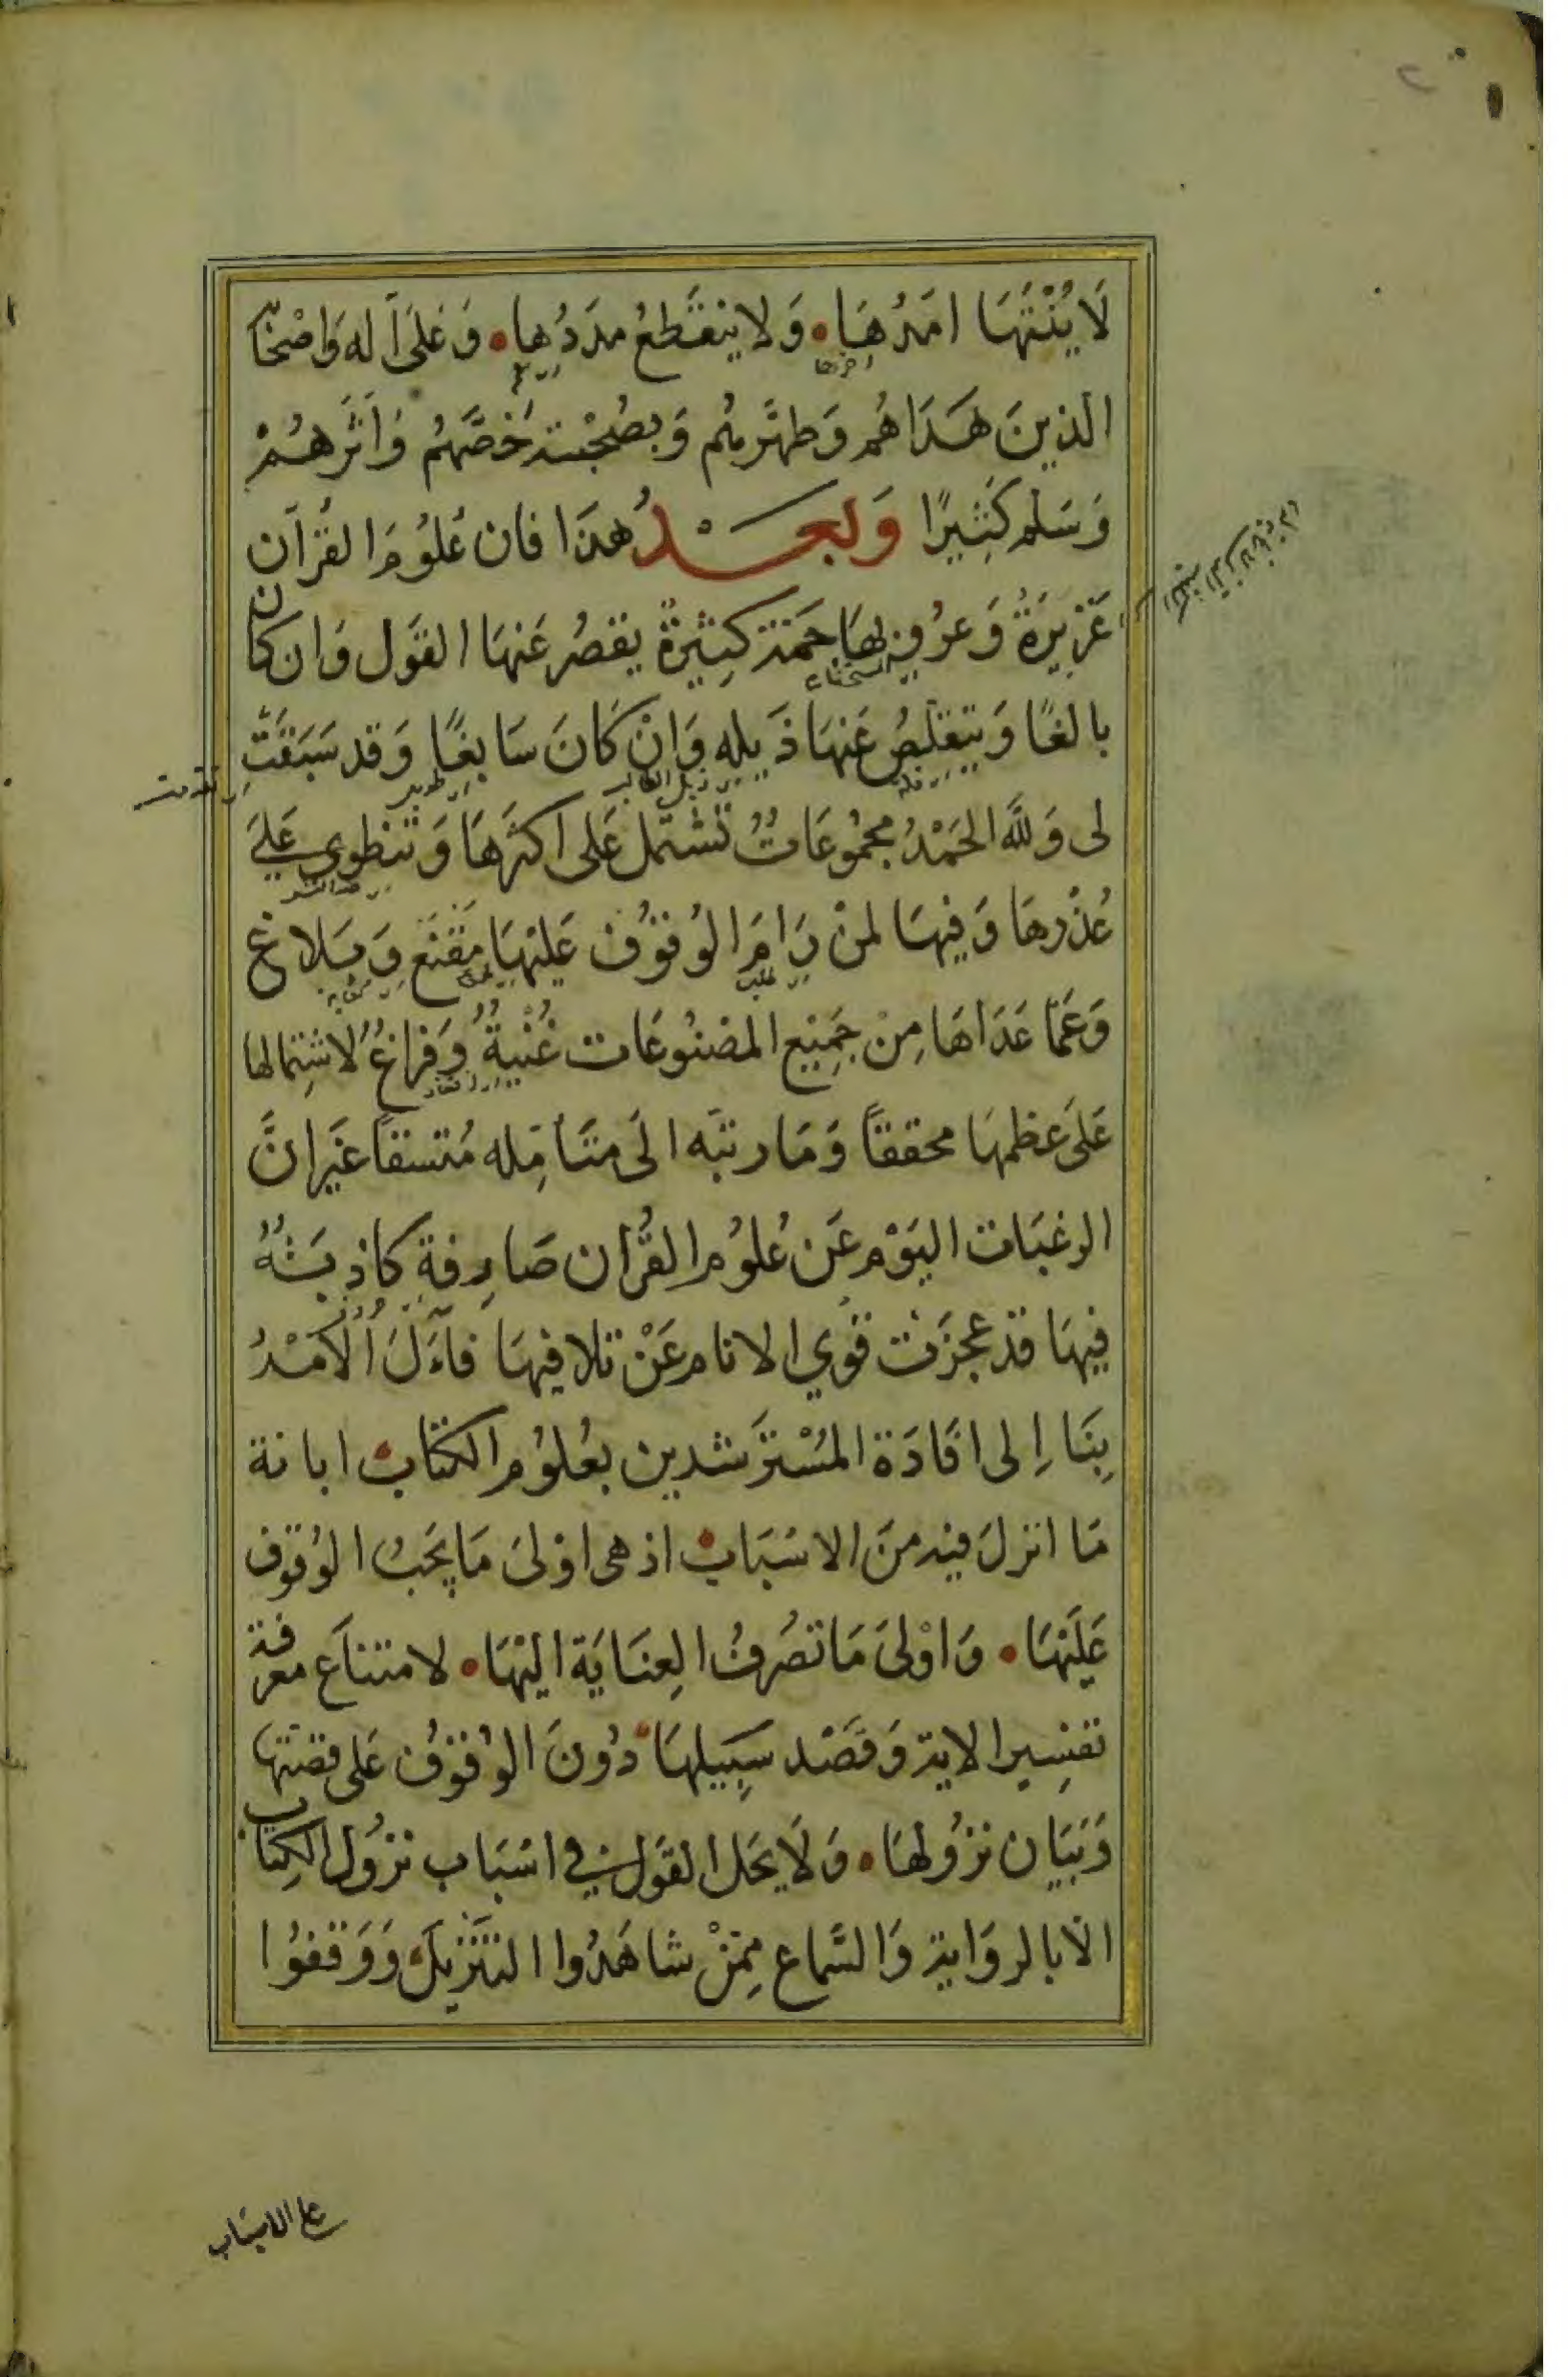 لَا يُنْتَهَا امَدُهَا • وَلا ينقَطعُ مدَدُها • وَعَلىَ آله وَاصْحَابِه
الذينَ هَدَاهُم وَطهَّرهُم وَبصُحْبته خَصَّهُم وَآثَرهُمْ
وَسَلم كَثِيرًا وَبعَدُ هذَا فان عُلوُمَ القُرآن
غزيرَةُ وَعرُوفهَا جَمَة كثِيرةُ يقصُر عَنهَا القوَل وَان كان
بالغًا وَيتقلّصُ عَنهَا ذَيله وَانْ كَانَ سَابغًا وَقد سَبَقَتْ
لى وَللَّه الحَمْدُ مجمُوعَاتُ تشتمل عَلى اَكثرهَا وَتنطوي عَلىَ
غُذْرهَا وَفيهَا لمنْ رَامَ الوُقوُف عَليْهَا مَقنَع وَبَلاغ
وَعَمّا عَدَاهَا مِنْ جَمِيْع المصنُوعَات غُنْيةُ وَفرَاغُ لاشتِمالها
عَلىَ عظمهَا محققاً وَمَا رتبَه الىَ متَأمِّله مُتسقاً غَير انَّ
الرغبَات اليَوْم عَن عُلوُم القُرْان صَارِفة كاذبَتُهُ
فيهَا قد عجزَت قوَي الانام عَنْ تلافيهَا فآلَ الْامْرُ
بنَا اِلى افَادَة المُسْترَشدين بعُلوُم الكتَاب • ابانة
مَا انزلَ فيه منَ الاسْبَاب • اذ هى اوْلىَ مَا يجَبُ الوُقوف
عَليَهَا • وَاوْلىَ مَا تصُرَفُ العِنَايَة اليْهَا • لامتناَع معرفة
تفسِير الاية وَقصَد سَبِيلهَا • دُونَ الوُقوُف عَلى قصّتها
وَبَيَان نزُولهَا • وَلَا يحَل القوَل فى اسْبَاب نزُول الكِتاب
الاّ بالروَاية وَالسَّماع مِمّنْ شاهَدُوا التنزْيلَ • وَوَقفوُا
على الاسَباب